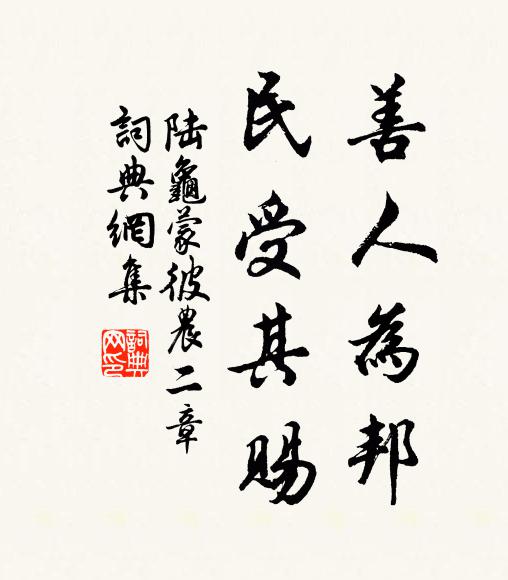 善人為邦
民受其賜
陸龜蒙彼農二章
詞典網集
詞典网印